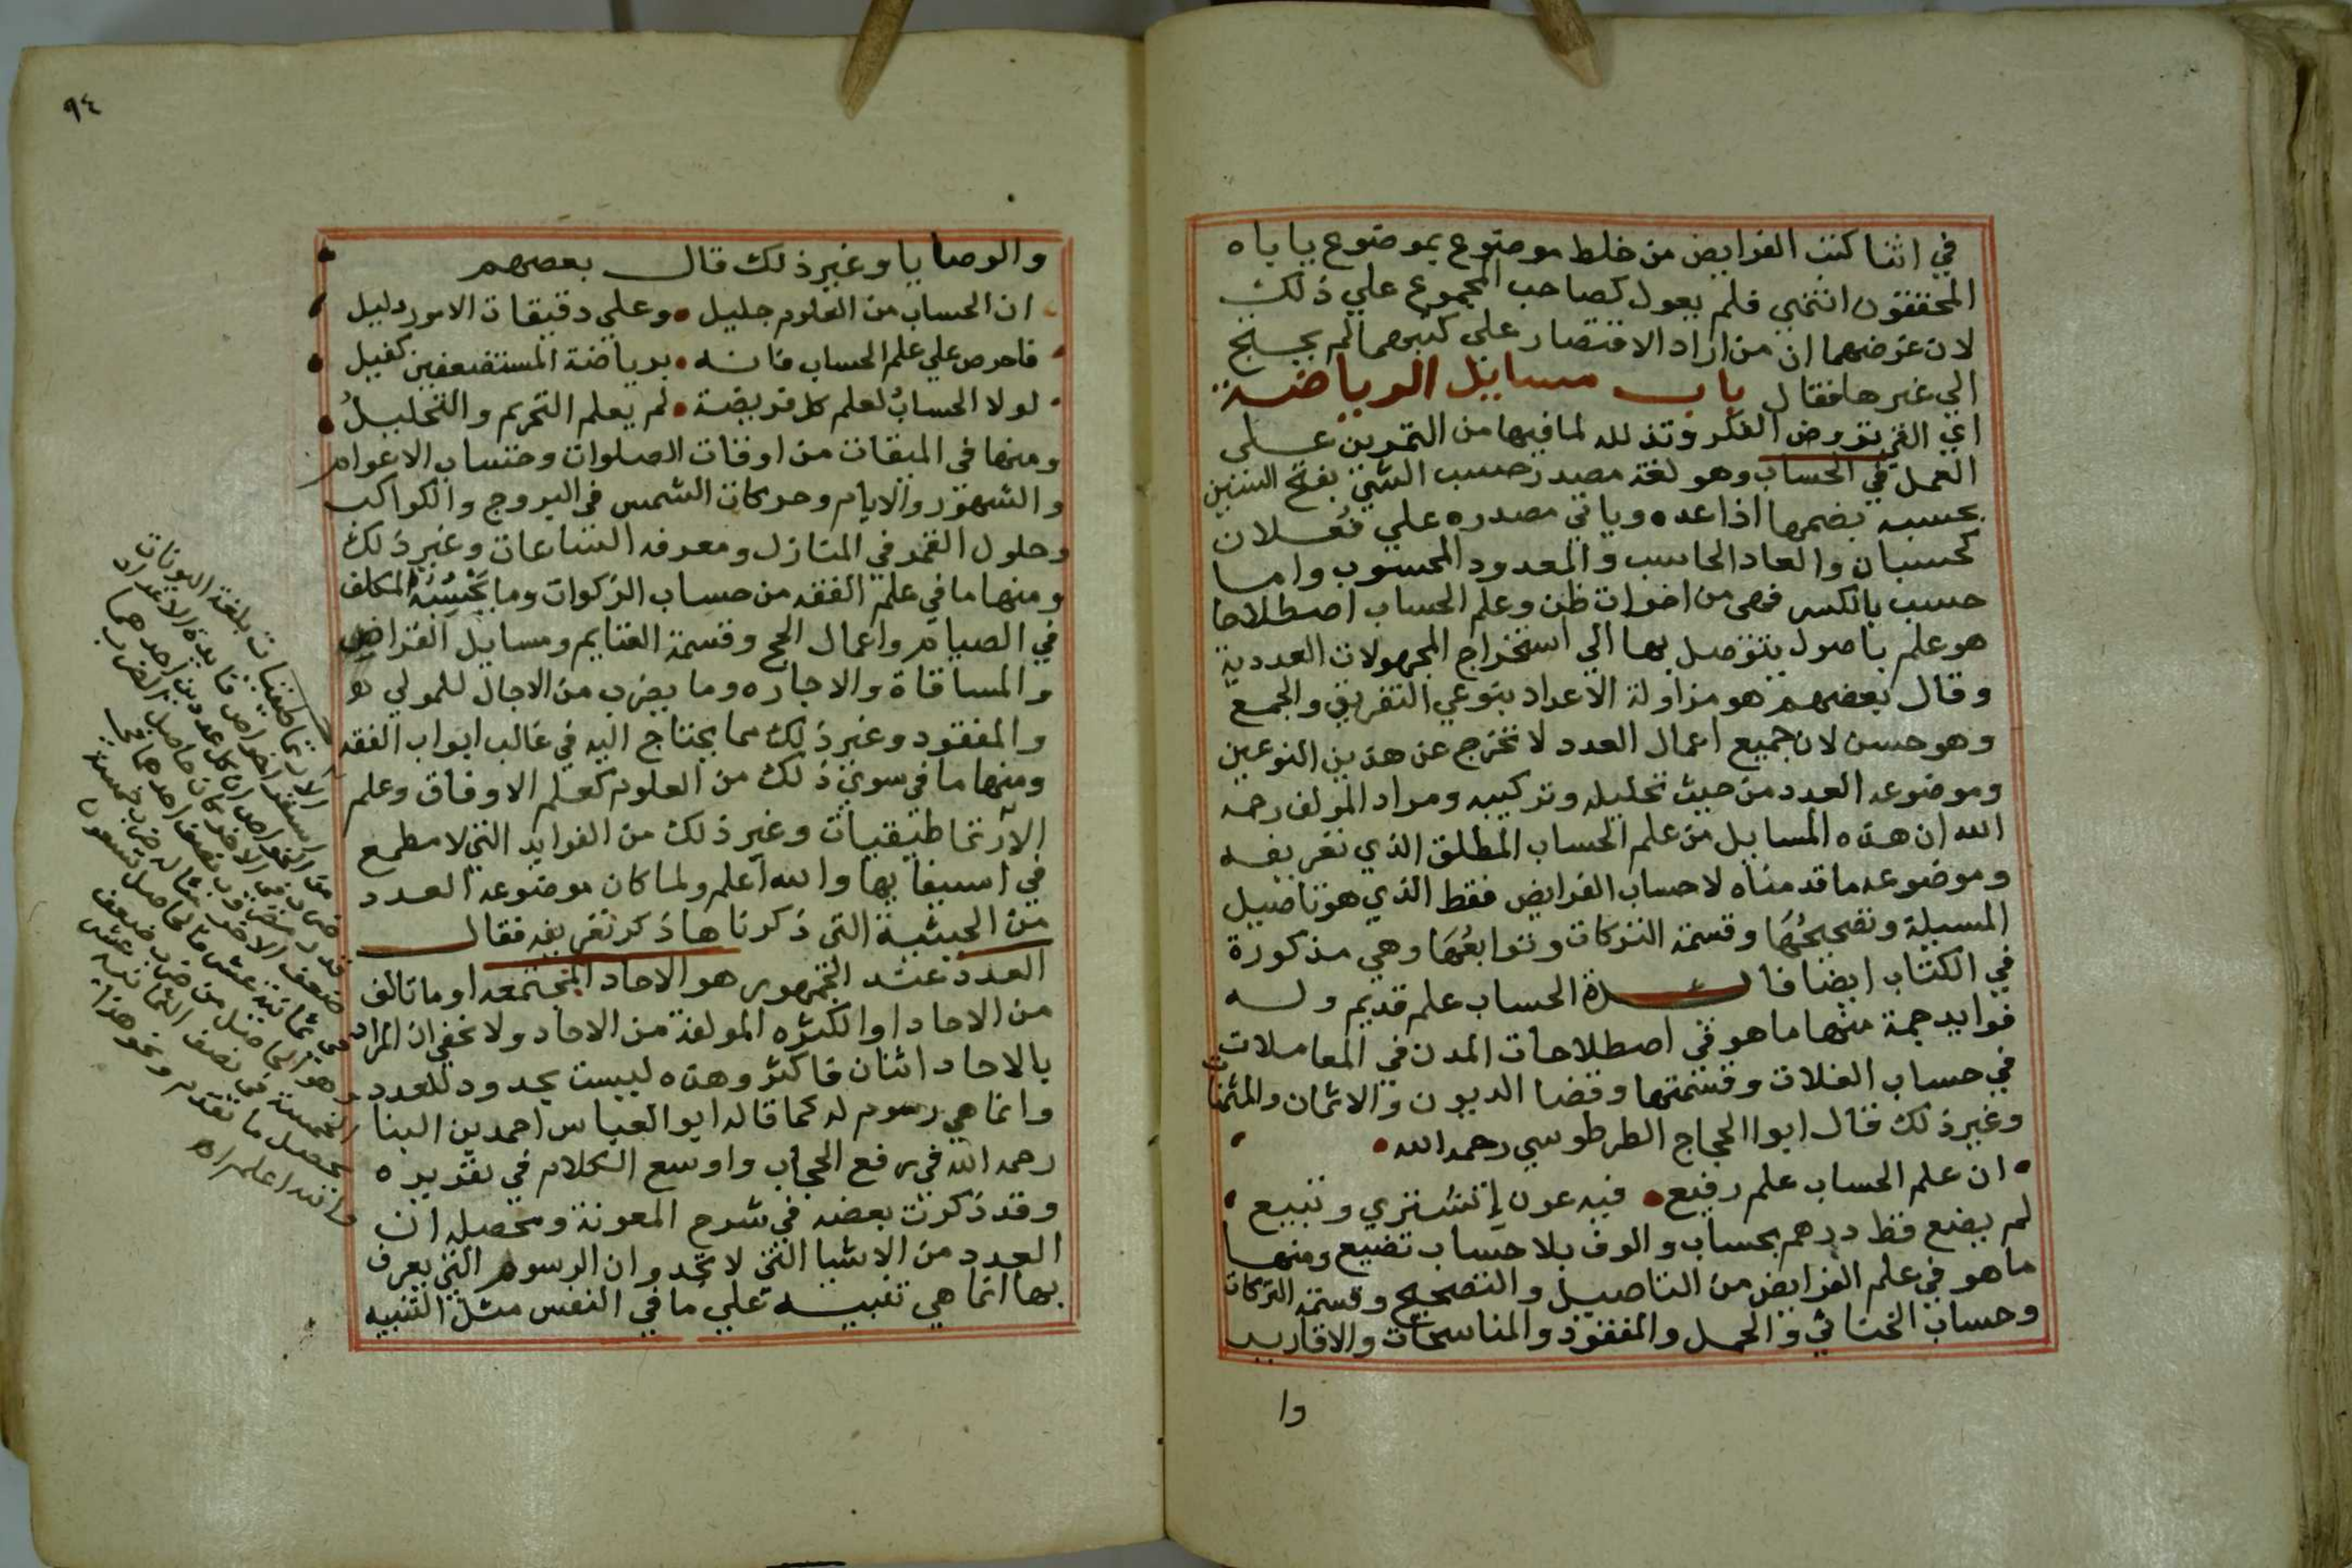 في اثنا كتب الفرايض من خلط موضوع بموضوع ياباه
المحققون انتهي فلم يعول كصاحب المجموع علي ذلك
لان غرضهما ان من اراد الاقتصار علي كتبهما لم يحتج
الي غيرها فقال باب مسايل الرياضة
اي التي تروض الفكر وتذلله لما فيها من التمرين علي
العمل في الحساب وهو لغة مصدر حسب الشي بفتح السين
يحسبه بضمها اذا عده وياتي مصدره علي فُعلان
كحسبان والعاد الحاسب والمعدود المحسوب واما
حسب بالكسر فهي من اخوات ظن وعلم الحساب اصطلاحا
هو علم باصول يتوصل بها الي استخراج المجهولات العددية
وقال بعضهم هو مزاولة الاعداد بنوعي التفريق والجمع
وهو حسن لان جميع اعمال العدد لا تخرج عن هذين النوعين
وموضوعه العدد من حيث تحليله وتركيبه ومراد المولف رحمه
الله ان هذه المسايل من علم الحساب المطلق الذي تعريفه
وموضوعه ما قدمناه لا حساب الفرايض فقط الذي هو تاصيل
المسيلة وتصحيحُها وقسمة التركات وتوابعُها وهي مذكورة
في الكتاب ايضا فايدة الحساب علم قديم وله
فوايد جمة منها ما هو في اصطلاحات المدن في المعاملات
في حساب الغلات وقسمتها وقضا الديون والاثمان والمثمنات
وغير ذلك قال ابوا الحجاج الطرطوسي رحمه الله
ان علم الحساب علم رفيع فيه عون اذ تشتري وتبيع
لم يضع قط درهم بحساب والوف بلا حساب تضيع ومنها
ما هو في علم الفرايض من التاصيل والتصحيح وقسمة التركات
وحساب الخناثي والحمل والمفقود والمناسخات والاقارير
وا
٩٤
والوصايا وغير ذلك قال بعضهم
ان الحساب من العلوم جليل وعلي دقيقات الامور دليل
فاحرص علي علم الحساب فانه برياضة المستضعفين كفيل
لولا الحسابُ لعلم كل فريضة لم يعلم التحريم والتحليلُ
ومنها في الميقات من اوقات الصلوات وحساب الاعوام
والشهور والايام وحركات الشمس في البروج والكواكب
وحلول القمر في المنازل ومعرفه الساعات وغير ذلك
ومنها ما في علم الفقه من حساب الزكوات وما يحسبه المكلف
في الصيام واعمال الحج وقسمة الغنايم ومسايل القراض
والمساقاة والاجاره وما يضرب من الاجال للمولي
والمفقود وغير ذلك مما يحتاج اليه في غالب ابواب الفقه
ومنها ما في سوي ذلك من العلوم كعلم الاوفاق وعلم
الارتماطيقيات وغير ذلك من الفوايد التي لا مطمع
في استيفايها والله اعلم ولما كان موضوعه العدد
من الحيثية التي ذكرناها ذكر تعريفه فقال
العدد عند الجمهور هو الاحاد المجتمعه او ما تالف
من الاحاد او الكثره المولفة من الاحاد ولا يخفي ان المراد
بالاحاد اثنان فاكثر وهذه ليست بحدود للعدد
وانما هي رسوم له كما قاله ابو العباس احمد بن البنا
رحمه الله في رفع الحجاب واوسع الكلام في تقريره
وقد ذكرت بعضه في شرح المعونة ومحصله ان
العدد من الاشيا التي لا تحد وان الرسوم التي يعرف
بها انما هي تنبيه علي ما في النفس مثل التنبيه
الارتماطيقيات بلغة اليونان
خواص الاعداد
نصف احدهما في
ضعف الاخر مثاله ضرب خمسة
في ثمانية عشر فالحاصل تسعون
وهو الحاصل من ضرب ضعف
الخمسة في نصف الثمانية عشر
يحصل ما تقدم ونحو هذا
والله اعلم اه